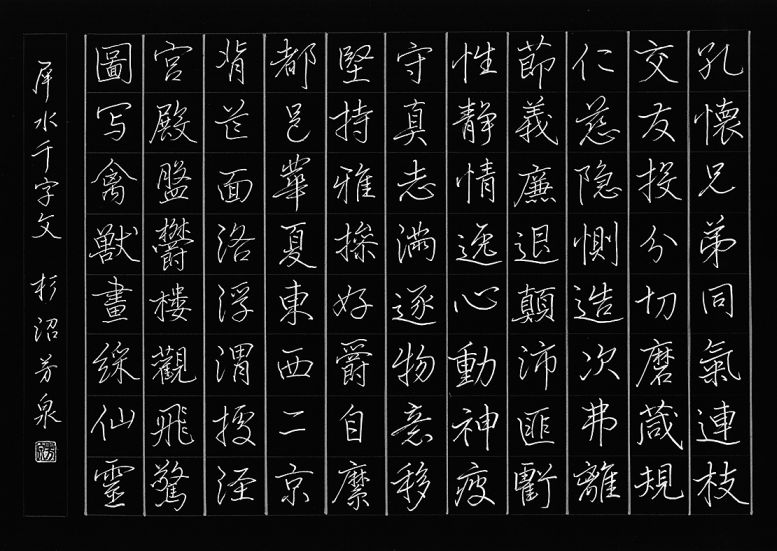 孔懐兄弟同氣連枝
交友投分切磨葴規
仁慈隠惻造次弗離
節義廉退顛沛匪虧
性静情逸心動神疲
守真志満逐物意移
堅持雅操好爵自縻
都邑華夏東西二京
背芒面洛浮渭據涇
宮殿盤欝樓觀飛驚
圖写禽獣畫綵仙靈
屏水千字文 杉沼芳泉